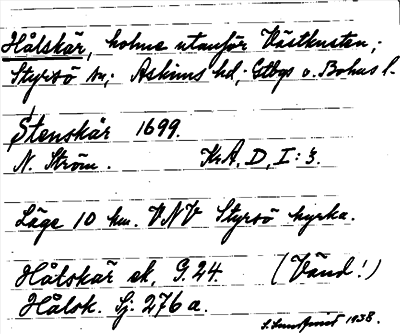 Hålskär, holme utanför Västkusten;
Styrsö sn; Askims hd; Gtbgs o. Bohus l.
Stenskär 1699.
N. Ström. KrA, D, I: 3.
Läge 10 km. VNV Styrsö kyrka.
Hålskär ek, G. 24. (Vänd!)
Hålsk. Sj. 276 a.
S. Sundqvist 1938.